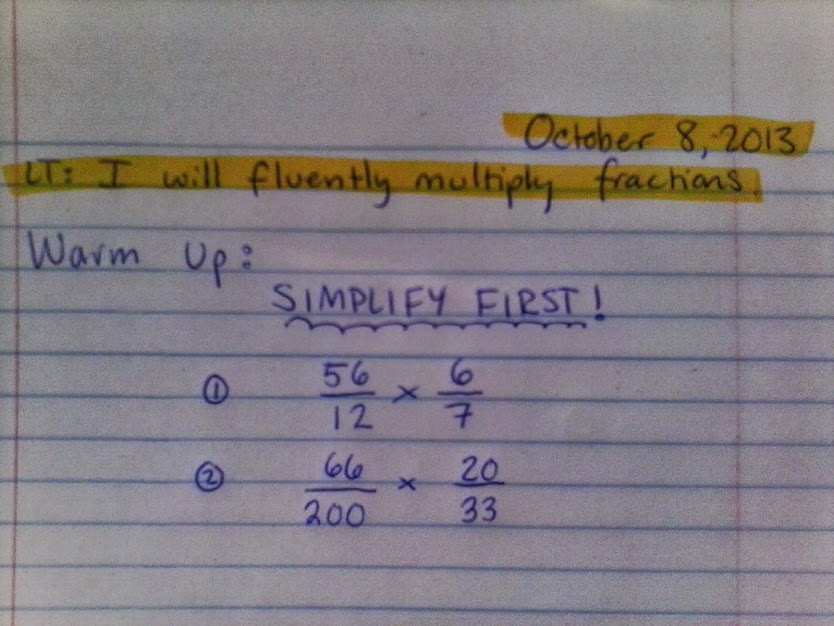 October 8, 2013
LT: I will fluently multiply fractions.
Warm Up:
SIMPLIFY FIRST!
① 56/12 × 6/7
② 66/200 × 20/33